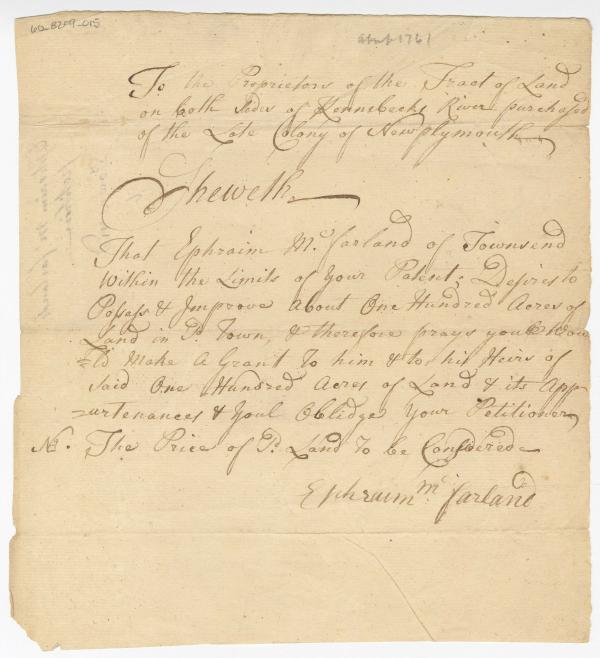 60_8209_015
about 1761
To the Proprietors of the Tract of Land
on both Sides of Kennebeck River purchased
of the Late Colony of New plymouth
Sheweth
That Ephraim Mc.farland of Townsend
Within the Limits of Your Patent; Desires to
Posass & Improve About One Hundred Acres of
Land in Sd. Town, & therefore prays you Wou
=ld Make A Grant To him & to his Heirs of
Said One Hundred Acres of Land & its App
=urtenances & Youl Oblidge Your Petitioner
NB. The Price of Sd. Land to be Considered
Ephraim mc farland